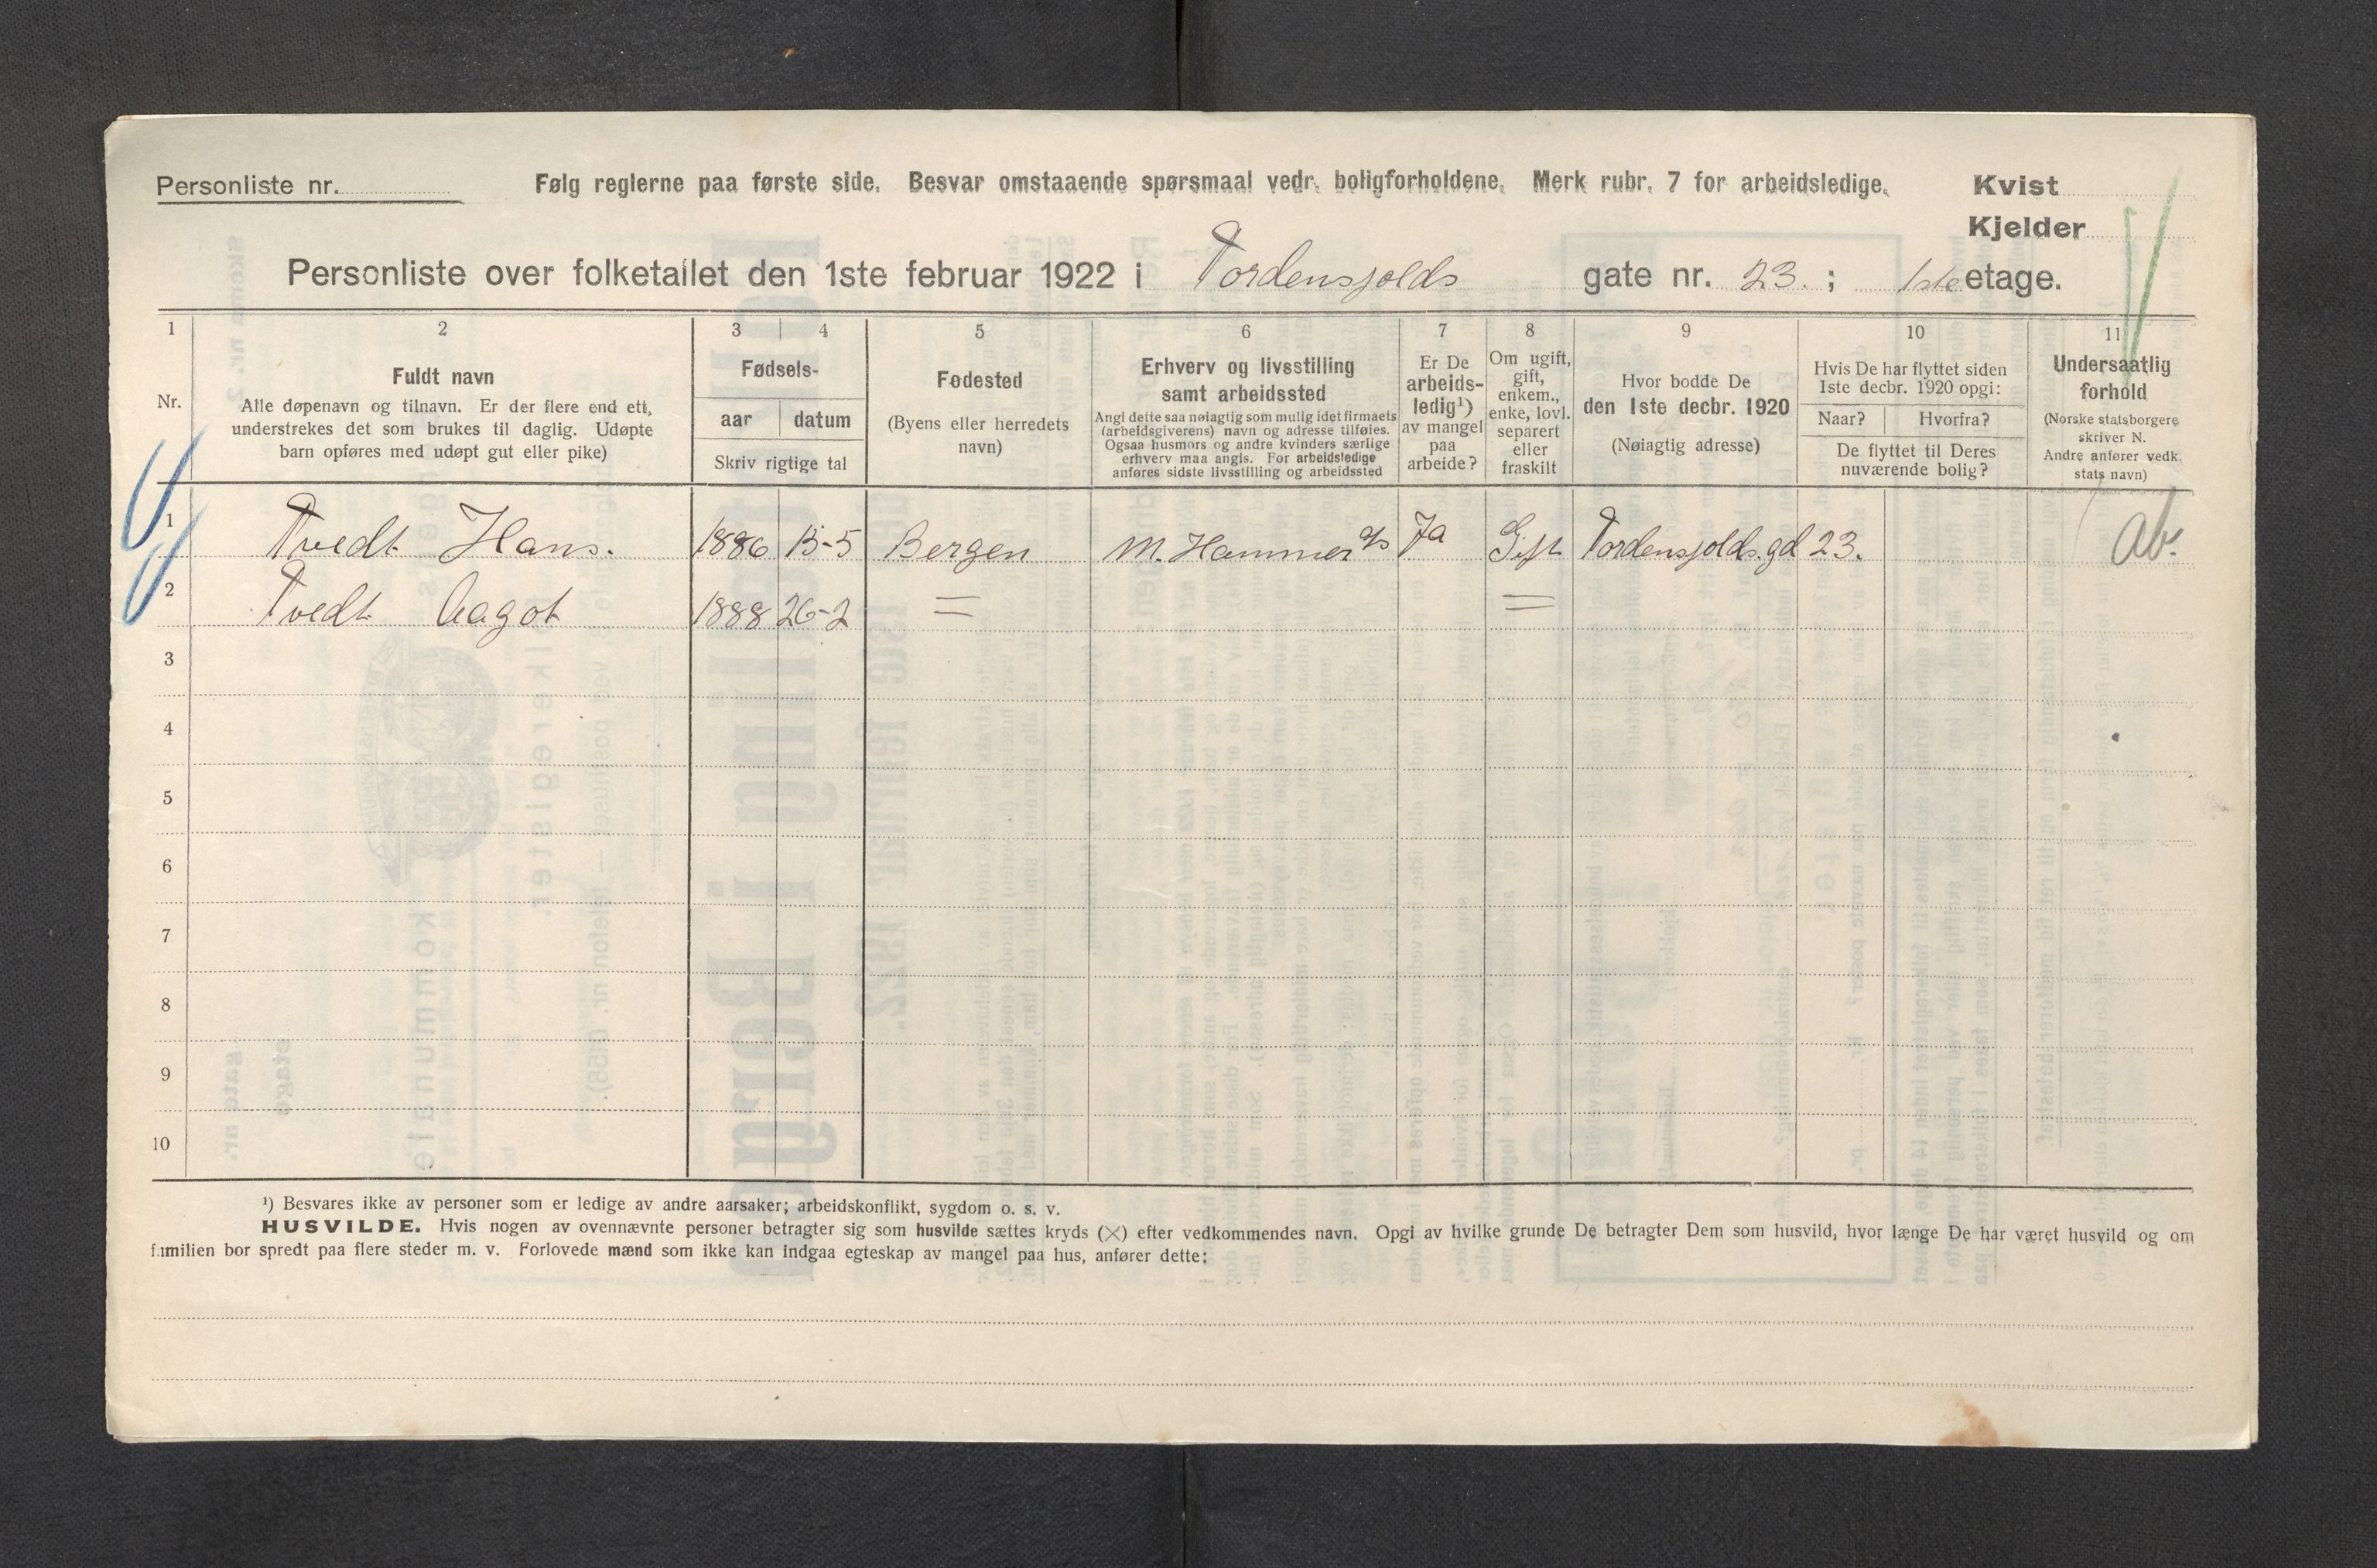 Personliste nr.
Følg reglerne paa første side. Besvar omstaaende spørsmaal vedr. boligforholdene. Merk rubr. 7 for arbeidsledige.
Kvist
Kjelder
Personliste over folketallet den 1ste februar 1922 i Tordensjolds gate nr. 23. ; 1ste etage.
1 2 3 4 5 6 7 8 9 10 11
Nr.
Fuldt navn
Alle døpenavn og tilnavn. Er der flere end ett,
understrekes det som brukes til daglig. Udøpte
barn opføres med udøpt gut eller pike)
Fødsels-
aar datum
Skriv rigtige tal
Fødested
(Byens eller herredets
navn)
Erhverv og livsstilling
samt arbeidssted
Angi dette saa nøiagtig som mulig idet firmaets
(arbeidsgiverens) navn og adresse tilføies.
Ogsaa husmors og andre kvinders særlige
erhverv maa angis. For arbeidsledige
anføres sidste livsstilling og arbeidssted
Er De
arbeids-
ledig¹)
av mangel
paa
arbeide?
Om ugift,
gift,
enkem.,
enke, lovl.
separert
eller
fraskilt
Hvor bodde De
den 1ste decbr. 1920
(Nøiagtig adresse)
Hvis De har flyttet siden
1ste decbr. 1920 opgi:
Naar? Hvorfra?
De flyttet til Deres
nuværende bolig?
Undersaatlig
forhold
(Norske statsborgere
skriver N.
Andre anfører vedk.
stats navn)
1 Tvedt Hans. 1886 15-5 Bergen M. Hammer Ja Gift Tordensjolds.gd 23. ab.
2 Tvedt Aagot 1888 26-2 = =
3
4
5
6
7
8
9
10
¹) Besvares ikke av personer som er ledige av andre aarsaker; arbeidskonflikt, sygdom o. s. v.
HUSVILDE. Hvis nogen av ovennævnte personer betragter sig som husvilde sættes kryds (×) efter vedkommendes navn. Opgi av hvilke grunde De betragter Dem som husvild, hvor længe De har været husvild og om
familien bor spredt paa flere steder m. v. Forlovede mænd som ikke kan indgaa egteskap av mangel paa hus, anfører dette: